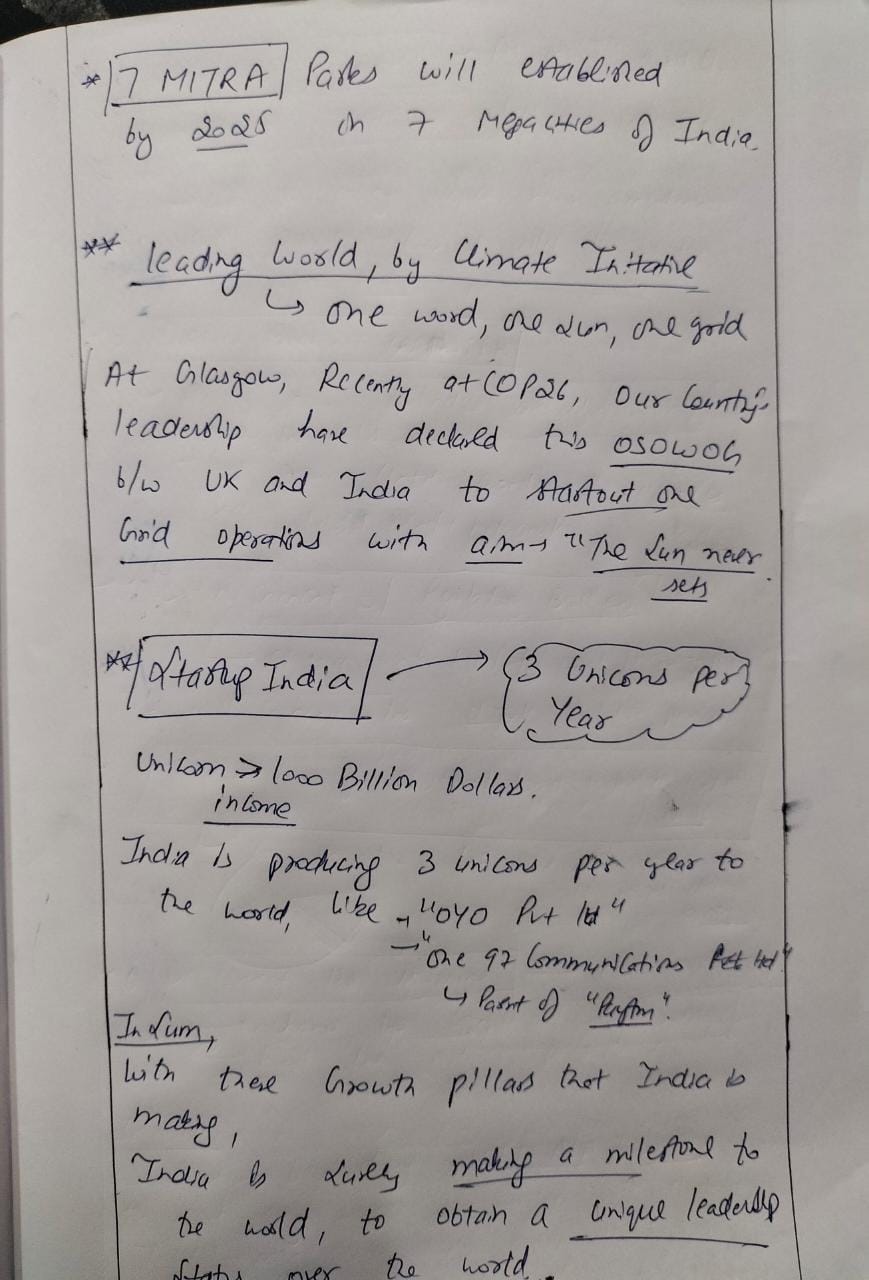 * 7 MITRA Parks will established
by 2025 in 7 Megacities of India.
** leading world, by Climate Initative
↳ one word, one sun, one grid
At Glasgow, Recently at COP26, Our Country's
leadership have declared this OSOWOG
b/w UK and India to startout one
Grid operations with aim → "The Sun never
sets
** Startup India → 3 Unicons per
Year
Unicorn ≥ 1000 Billion Dollars.
income
India is producing 3 unicons per year to
the world, like → "OYO Pvt ltd"
→ "One 97 Communications Pvt ltd"
↳ Parnt of "Paytm".
In Sum,
With these Growth pillars that India is
making,
India is surely making a milestone to
the world, to obtain a unique leadership
status over the world.